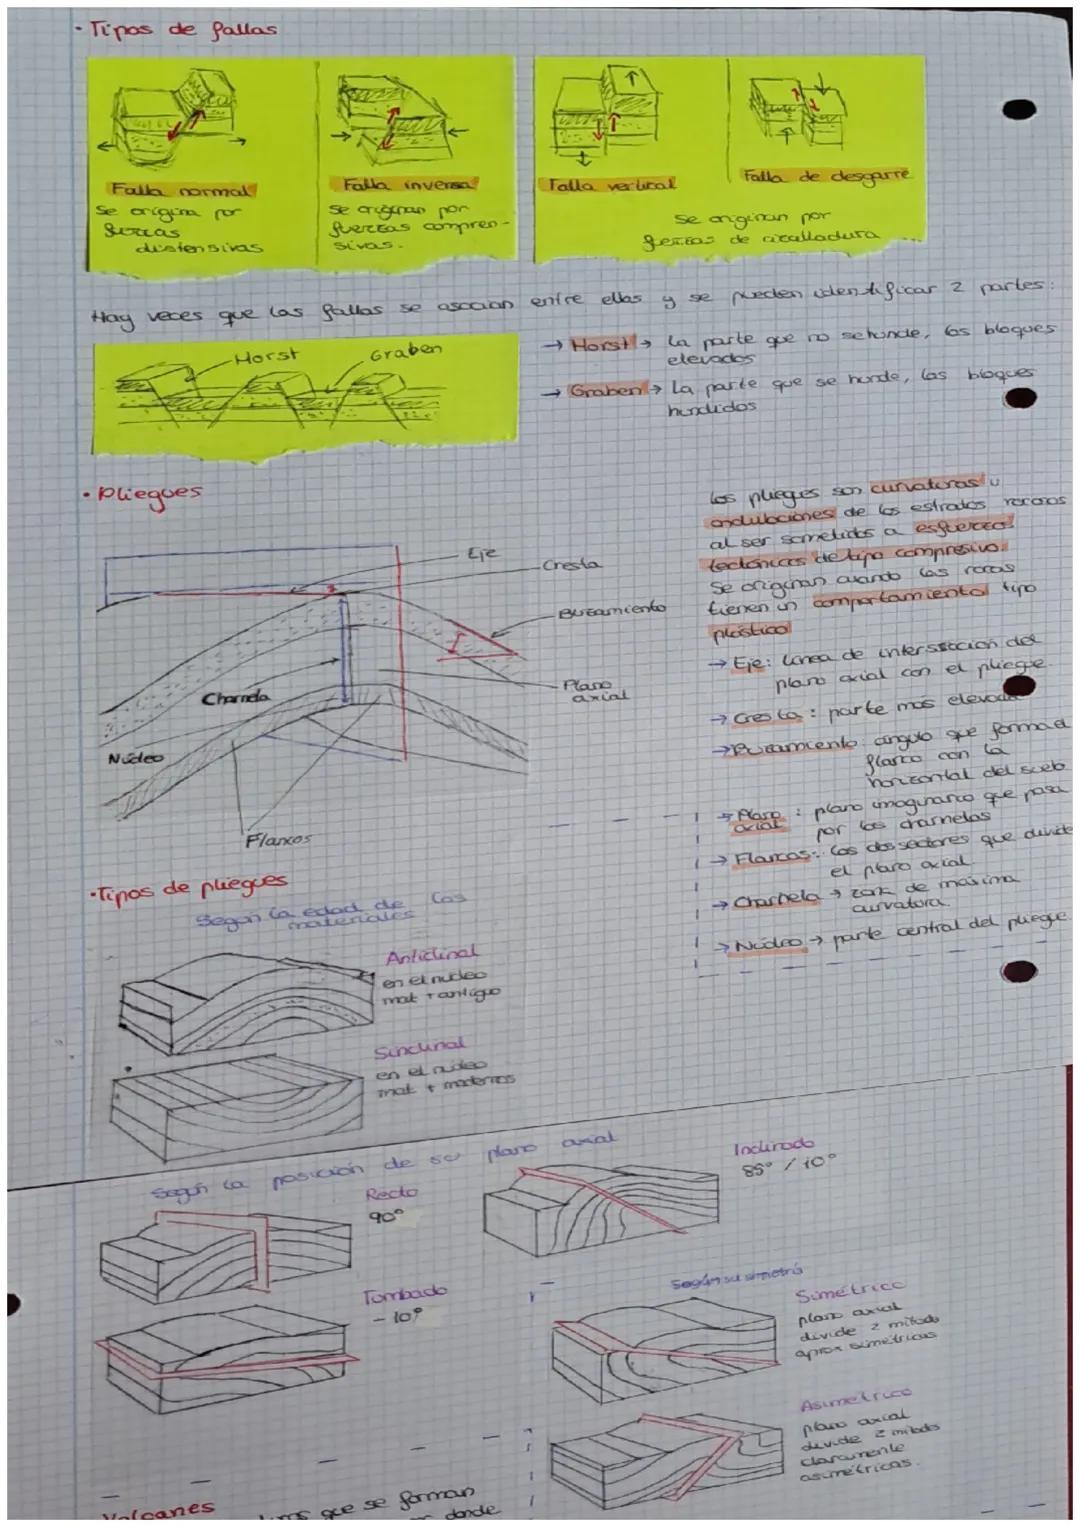 · Tipos de fallas
Falla normal
Se origina por
fuerzas
distensivas
Falla inversa
se originan por
fuerzas compren-
sivas.
Falla vertical
Falla de desgarre
Se originan por
fuerzas de cizalladura
Hay veces que las fallas se asocian entre ellas y se pueden identificar 2 partes:
Horst
Graben
→ Horst → La parte que no se hunde, los bloques
elevados
→ Graben → La parte que se hunde, los bloques
hundidos
· Pliegues
Eje
Cresta
Buzamiento
Plano
axial
Charnela
Núcleo
Flancos
Los pliegues son curvaturas u
ondulaciones de los estratos rocosos
al ser sometidos a esfuerzos
tectónicos de tipo compresivo.
Se originan cuando las rocas
tienen un comportamiento tipo
plástico
→ Eje: línea de intersección del
plano axial con el pliegue.
→ Cresta: parte más elevada
→ Buzamiento: ángulo que forma el
flanco con la
horizontal del suelo
→ Plano axial : plano imaginario que pasa
por las charnelas
→ Flancos: Los dos sectores que divide
el plano axial
→ Charnela → zona de máxima
curvatura.
→ Núcleo → parte central del pliegue.
· Tipos de pliegues
Según la edad de los
materiales
Anticlinal
en el núcleo
mat + antiguo
Sinclinal
en el núcleo
mat + modernos
Según la posición de su plano axial
Recto
90°
Inclinado
85° / 10°
Tombado
- 10°
Según su simetría
Simétrico
plano axial
divide 2 mitads
aprox simétricas
Asimétrico
plano axial
divide 2 mitads
claramente
asimétricas.
Volcanes
que se forman
donde